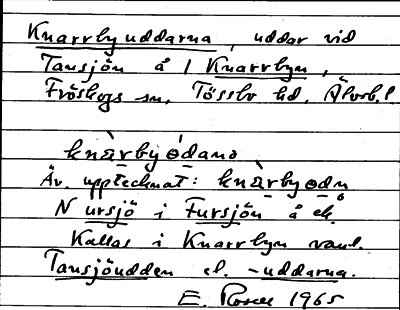 Knarrbyuddarna, uddar vid
Tansjön å 1 Knarrbyn,
Fröskogs sn, Tössbo hd, Älvsb. l
knàrbyødana
Äv. upptecknat: knàrbyødn
N Ursjö i Fursjön å ek.
Kallas i Knarrbyn vanl.
Tansjöudden el. -uddarna.
E. 1965